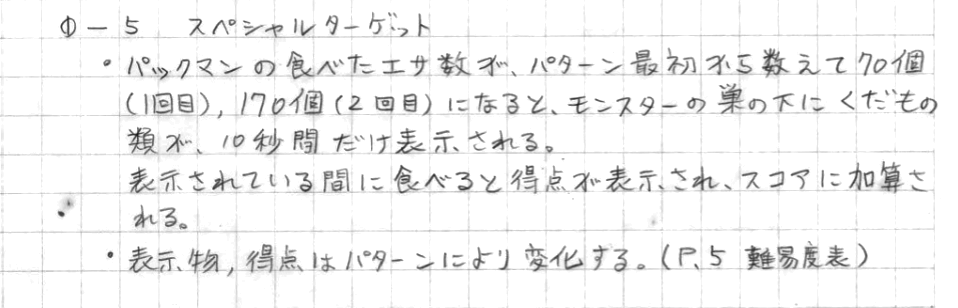 Φ－5　スペシャルターゲット
・パックマンの食べたエサ数が、パターン最初から数えて70個
(1回目), 170個(2回目)になると、モンスターの巣の下にくだもの
類が、10秒間だけ表示される。
表示されている間に食べると得点が表示され、スコアに加算さ
れる。
・表示物, 得点はパターンにより変化する。(P.5 難易度表)